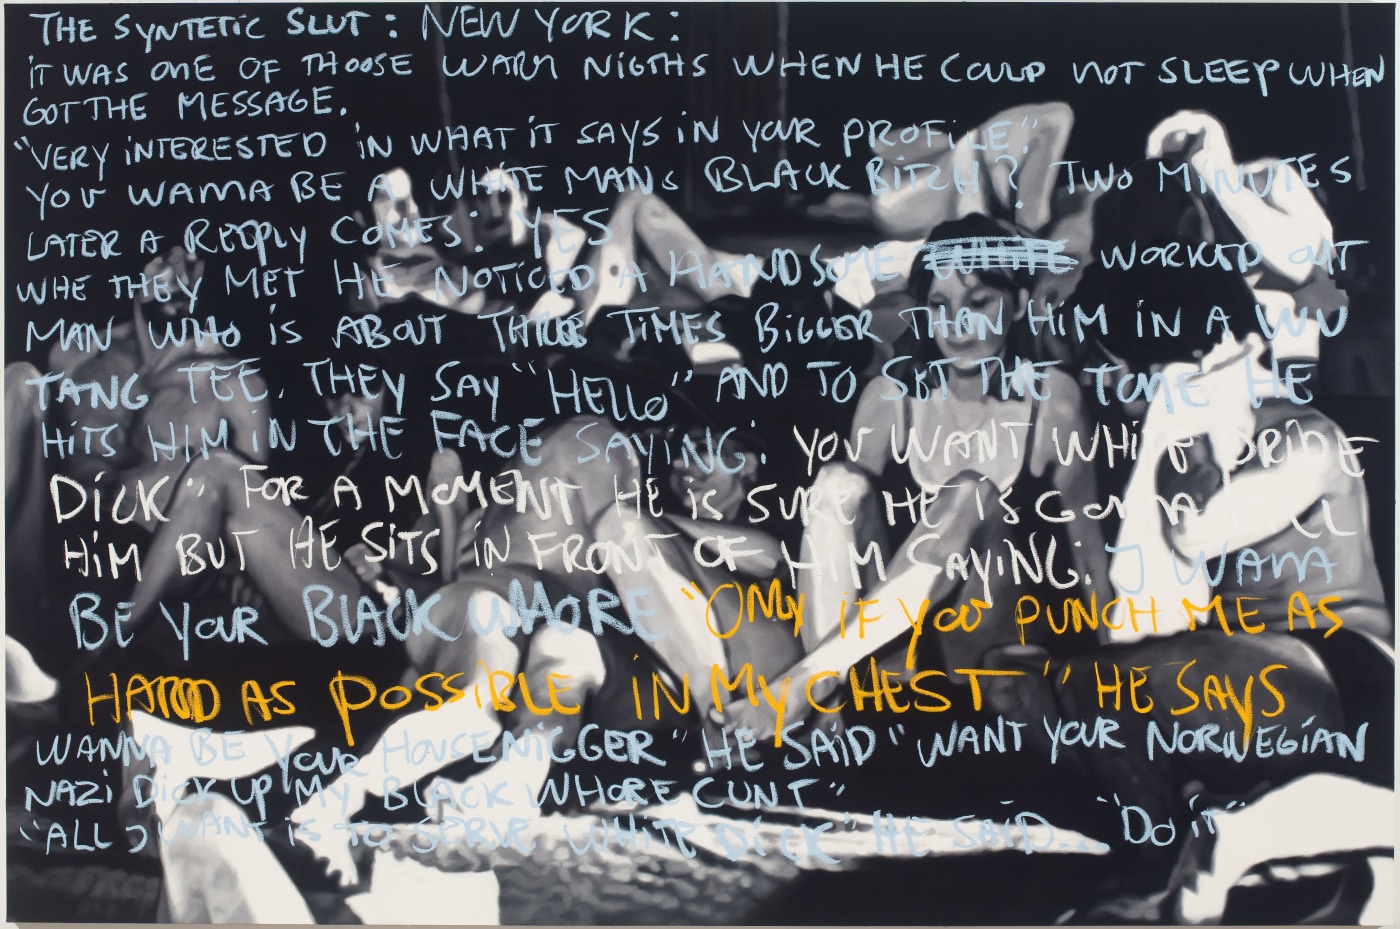 THE SYNTETIC SLUT: NEW YORK:
IT WAS ONE OF THOOSE WARM NIGTHS WHEN HE COULD NOT SLEEP WHEN
GOT THE MESSAGE.
"VERY INTERESTED IN WHAT IT SAYS IN YOUR PROFILE."
YOU WANNA BE A WHITE MANS BLACK BITCH? TWO MINUTES
LATER A REPPLY COMES: YES
WHE THEY MET HE NOTICED A HANDSOME WORKED OUT
MAN WHO IS ABOUT THREE TIMES BIGGER THAN HIM IN A WU
TANG TEE. THEY SAY "HELLO" AND TO SET THE TONE HE
HITS HIM IN THE FACE SAYING: YOU WANT WHITE PRIDE
DICK" FOR A MOMENT HE IS SURE HE IS GONNA
HIM BUT HE SITS IN FRONT OF HIM SAYING: I WANA
BE YOUR BLACK WHORE "ONLY IF YOU PUNCH ME AS
HARD AS POSSIBLE IN MY CHEST" HE SAYS
WANNA BE YOUR HOUSENIGGER" HE SAID "WANT YOUR NORWEGIAN
NAZI DICK UP MY BLACK WHORE CUNT"
"ALL I WANT IS TO SERVE WHITE DICK" HE SAID... "DO IT"